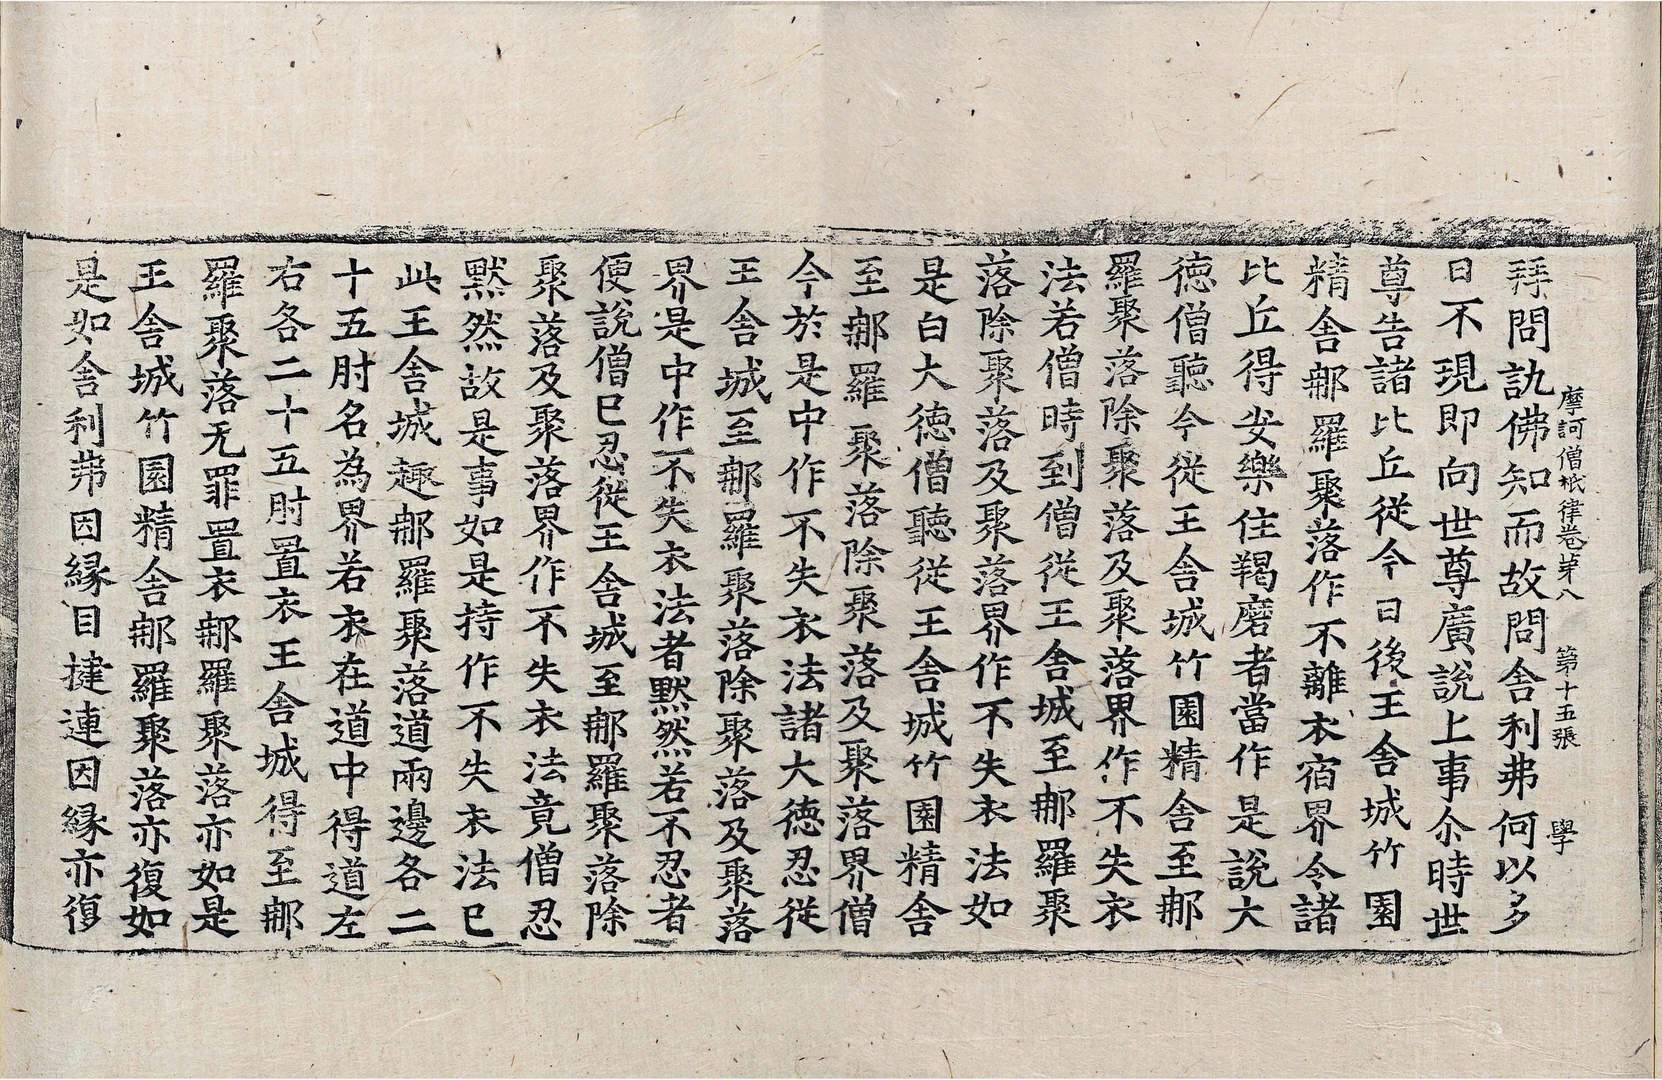 摩訶僧祇律卷苐八 第十五張 學
拜問訊佛知而故問舎利弗何以多
日不現即向世尊廣說上事尒時世
尊告諸比丘従今日後王舎城竹園
精舎郍羅聚落作不離衣宿界令諸
比丘得安樂住羯磨者當作是說大
徳僧聽今従王舎城竹園精舎至郍
羅聚落除聚落及聚落界作不失衣
法若僧時到僧従王舎城至郍羅聚
落除聚落及聚落界作不失衣法如
是白大徳僧聽従王舎城竹園精舎
至郍羅聚落除聚落及聚落界僧
今於是中作不失衣法諸大徳忍従
王舎城至郍羅聚落除聚落及聚落
界是中作不失衣法者黙然若不忍者
便說僧巳忍従王舎城至郍羅聚落除
聚落及聚落界作不失衣法竟僧忍
黙然故是事如是持作不失衣法巳
此王舎城趣郍羅聚落道兩邊各二
十五肘名為界若衣在道中得道左
右各二十五肘置衣王舎城得至郍
羅聚落无罪置衣郍羅聚落亦如是
王舎城竹園精舎郍羅聚落亦復如
是如舎利弗因縁目揵連因縁亦復